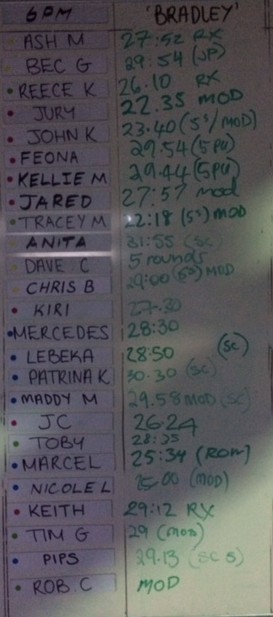 6PM 'BRADLEY'
ASH M 27:52 RX
BEC G 29:54 (JP)
REECE K 26.10 RX
JURY 22.35 MOD
JOHN K 23.40 (5's/MOD)
FEONA 29.54 (5PU)
KELLIE M 29.44 (5PU)
JARED 27:57 mod
TRACEY M 22:18 (5's) MOD
ANITA 31:55 (SC)
DAVE C 5 rounds
CHRIS B 29:00 (5's) MOD
KIRI 27.30
MERCEDES 28:30
LEBEKA 28.50 (SC)
PATRINA K 30.30 (SC)
MADDY M 29.58 MOD (SC)
JC 26.24
TOBY 28:35
MARCEL 25:34 (ROM)
NICOLE L 25.00 (MOD)
KEITH 29:12 RX
TIM G 29 (Mod)
PIPS 29.13 (SC S)
ROB C MOD